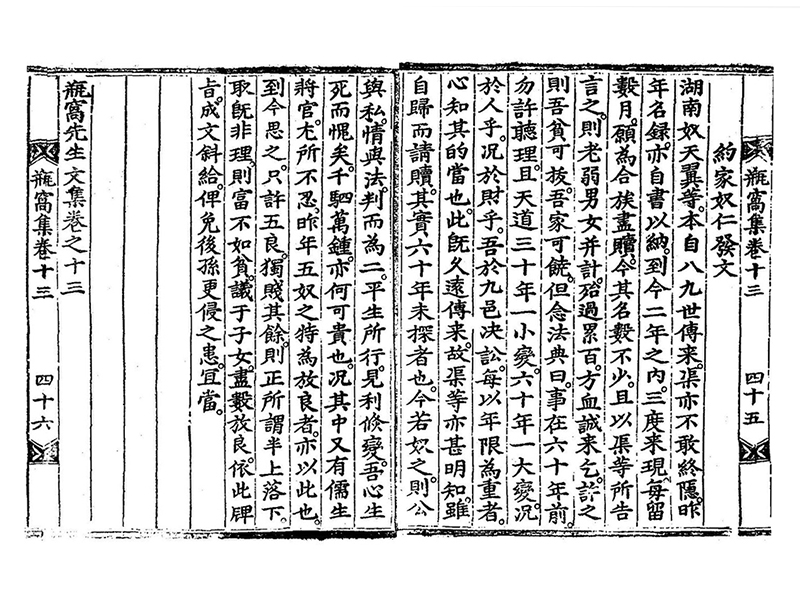 瓶窩集卷十三 四十五
約家奴仁發文
湖南奴天翼等。本自八九世傳来。渠亦不敢終隱。昨
年名錄。亦自書以納。到今二年之內。三度来現。每留
數月。願為合族盡贖。今其名數不少。且以渠等所告
言之。則老弱男女并計。殆過累百。方血誠来乞。許之
則吾貧可拔。吾家可饒。但念法典曰。事在六十年前。
勿許聽理。且天道三十年一小變。六十年一大變。况
於人乎。况於財乎。吾於九邑决訟。每以年限為重者。
心知其的當也。此旣久遠傳来。故渠等亦甚明知。雖
自歸而請贖。其實六十年未探者也。今若奴之。則公
與私。情與法。判而為二。平生所行。見利倏變。吾心生
死而愧矣。千駟萬鍾。亦何可貴也。况其中又有儒生
將官。尤所不忍。昨年五奴之特為放良者。亦以此也。
到今思之。只許五良。獨賤其餘。則正所謂半上落下。
取旣非理。則富不如貧。議于子女。盡數放良。依此牌
旨。成文斜給。俾免後孫更侵之患。宜當。
瓶窩先生文集卷之十三
瓶窩集卷十三 四十六